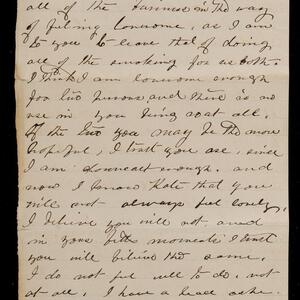 all of the business in the way
of feeling lonesome, as I am
to you to leave that of doing
all of the smoking for us both.
I think I am lonesome enough
for two persons and there is no
use in you being so at all.
Of the two you may be the more
hopeful, I trust you are, since
I am downcast enough. and
now I know Kate that you
will not always feel lonely,
I believe you will not. and
in your better moments I trust
you will believe the same.
I do not feel well to day, not
at all, I have a head ache